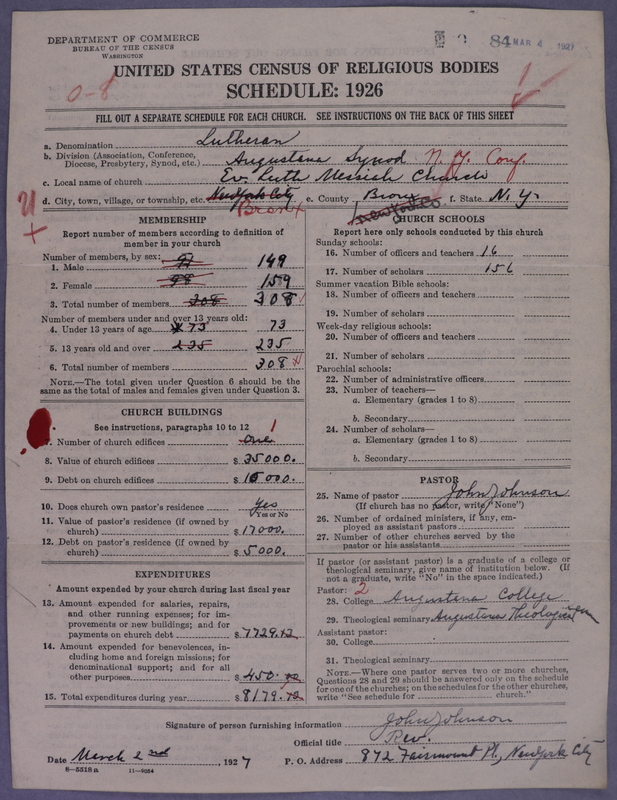 DEPARTMENT OF COMMERCE
BUREAU OF THE CENSUS
WASHINGTON
84 MAR 4 1927
UNITED STATES CENSUS OF RELIGIOUS BODIES
SCHEDULE: 1926
0-8
FILL OUT A SEPARATE SCHEDULE FOR EACH CHURCH. SEE INSTRUCTIONS ON THE BACK OF THIS SHEET
a. Denomination Lutheran
b. Division (Association, Conference, Diocese, Presbytery, Synod, etc.) Augustana Synod N. Y. Conf.
c. Local name of church Ev. Luth Messiah Church
d. City, town, village, or township, etc. New York City Bronx e. County Bronx f. State N. Y.
New York Co
MEMBERSHIP
Report number of members according to definition of
member in your church
Number of members, by sex:
1. Male 149
2. Female 98 159
3. Total number of members 208 308
Number of members under and over 13 years old:
4. Under 13 years of age 73 73
5. 13 years old and over 235 235
6. Total number of members 308
NOTE.—The total given under Question 6 should be the
same as the total of males and females given under Question 3.
CHURCH BUILDINGS
See instructions, paragraphs 10 to 12
7. Number of church edifices one 1
8. Value of church edifices $ 35000.
9. Debt on church edifices $ 15000.
10. Does church own pastor's residence Yes
Yes or No
11. Value of pastor's residence (if owned by
church) $ 17000.
12. Debt on pastor's residence (if owned by
church) $ 5000.
EXPENDITURES
Amount expended by your church during last fiscal year
13. Amount expended for salaries, repairs,
and other running expenses; for im-
provements or new buildings; and for
payments on church debt $ 7729.12
14. Amount expended for benevolences, in-
cluding home and foreign missions; for
denominational support; and for all
other purposes $ 450.
15. Total expenditures during year $ 8179.12
CHURCH SCHOOLS
Report here only schools conducted by this church
Sunday schools:
16. Number of officers and teachers 16
17. Number of scholars 156
Summer vacation Bible schools:
18. Number of officers and teachers
19. Number of scholars
Week-day religious schools:
20. Number of officers and teachers
21. Number of scholars
Parochial schools:
22. Number of administrative officers
23. Number of teachers—
a. Elementary (grades 1 to 8)
b. Secondary
24. Number of scholars—
a. Elementary (grades 1 to 8)
b. Secondary
PASTOR
25. Name of pastor John Johnson
(If church has no pastor, write "None")
26. Number of ordained ministers, if any, em-
ployed as assistant pastors
27. Number of other churches served by the
pastor or his assistants
If pastor (or assistant pastor) is a graduate of a college or
theological seminary, give name of institution below. (If
not a graduate, write "No" in the space indicated.)
Pastor: 2
28. College Augustana College
29. Theological seminary Augustana Theological Sem
Assistant pastor:
30. College
31. Theological seminary
NOTE.—Where one pastor serves two or more churches,
Questions 28 and 29 should be answered only on the schedule
for one of the churches; on the schedules for the other churches,
write "See schedule for church."
Signature of person furnishing information John Johnson
Official title Rev.
Date March 2nd, 1927 P. O. Address 872 Fairmount Pl., New York City
8-5518a 11-9034